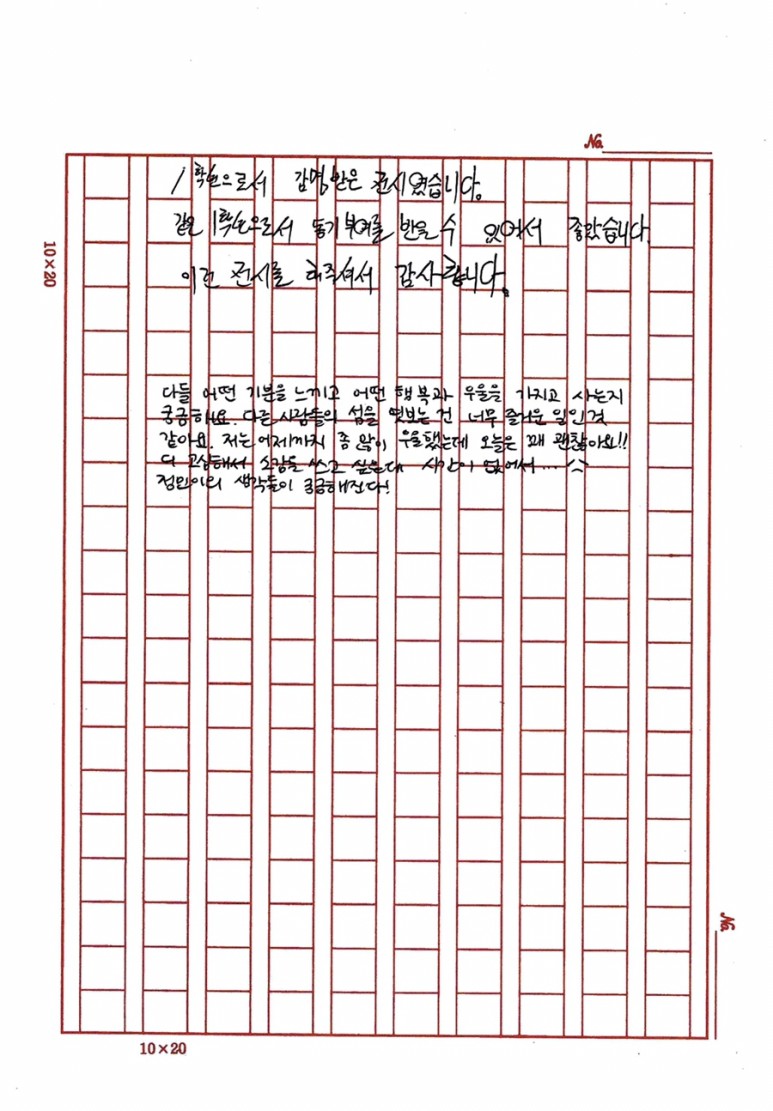 No.
1학년으로서 감명받은 전시였습니다.
같은 1학년으로서 동기부여를 받을 수 있어서 좋았습니다.
이런 전시를 해주셔서 감사합니다.
10×20
다들 어떤 기분을 느끼고 어떤 행복과 우울을 가지고 사는지
궁금해요. 다른 사람들의 삶을 엿보는 건 너무 즐거운 일인 것
같아요. 저는 어제까지 좀 많이 우울했는데 오늘은 꽤 괜찮아요!!
더 고심해서 소감을 쓰고 싶은데 시간이 없어서...
정민이의 생각들이 궁금해진다!
No.
10×20